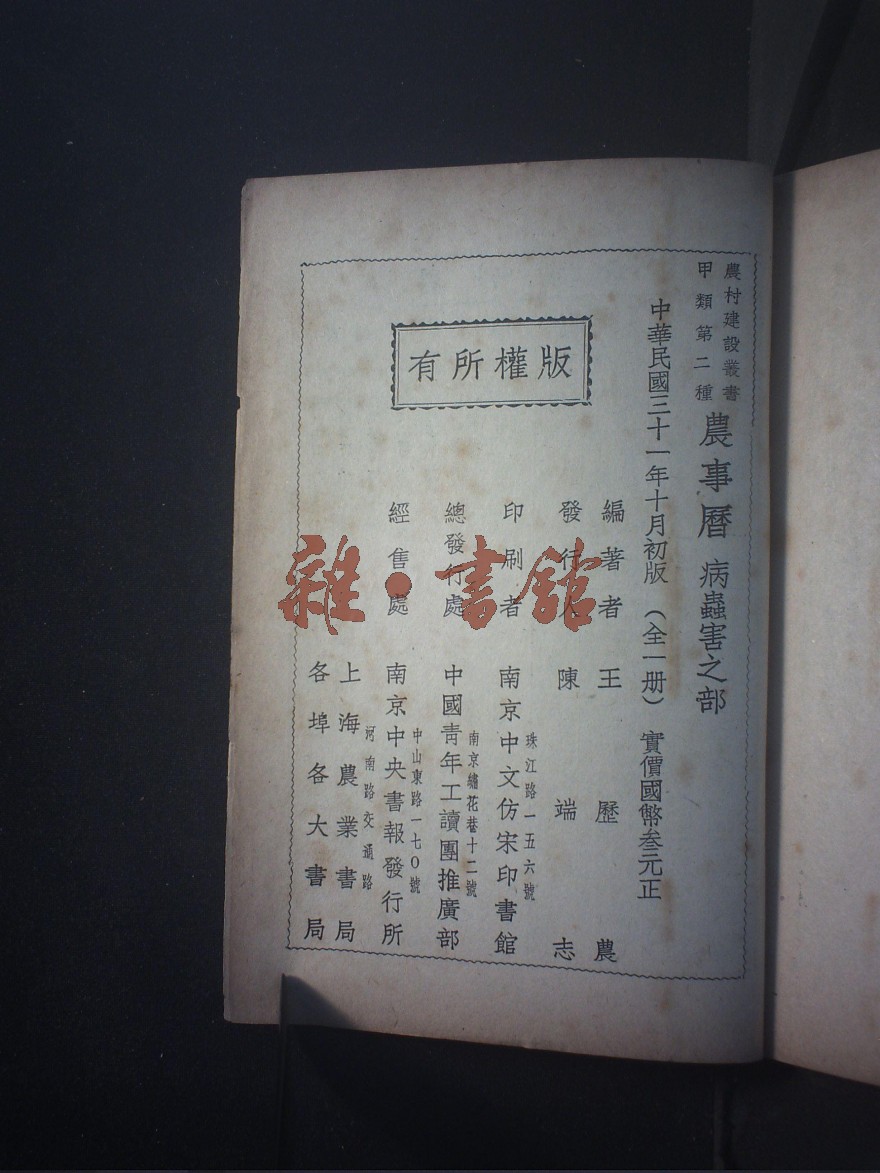 農村建設叢書
甲類第二種
農事曆 病蟲害之部
中華民國三十一年十月初版 (全一册) 實價國幣叁元正
版權所有
編著者 王歷農
發行人 陳端志
印刷者 南京中文仿宋印書館
珠江路一五六號
總發行處 中國靑年工讀團推廣部
南京繡花巷十二號
經售處 南京中央書報發行所
中山東路一七〇號
上海農業書局
河南路交通路
各埠各大書局
雜·書館